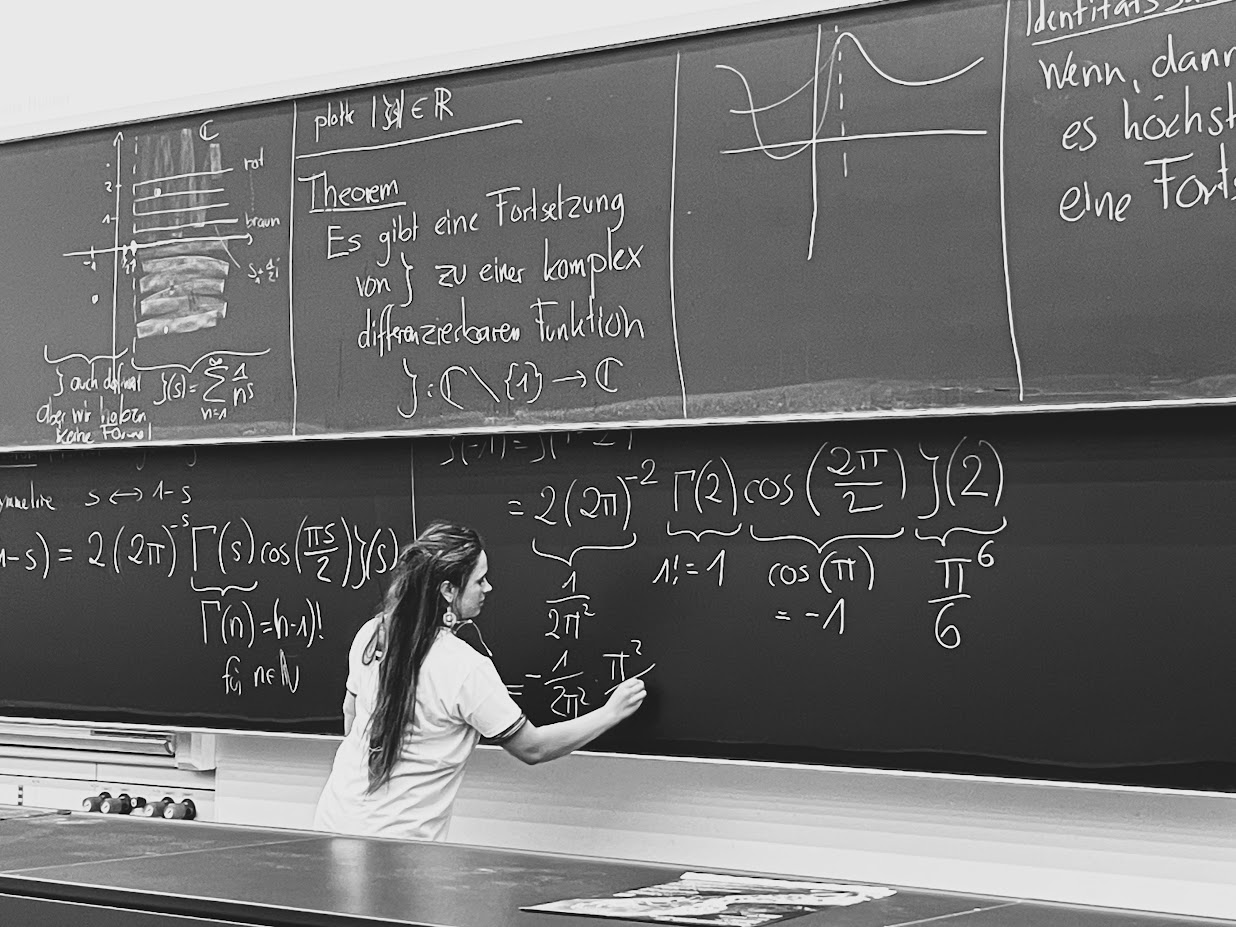 ℂ
rot
2
1
braun
-1
1
s + ½i
ζ auch definiert
aber wir haben
keine Formel
ζ(s) = ∑_{n=1}^{∞} 1/n^s
plotte |ζ| ∈ ℝ
Theorem
Es gibt eine Fortsetzung
von ζ zu einer komplex
differenzierbaren Funktion
ζ : ℂ \ {1} → ℂ
Wenn, dann
es höchst
eine Forts
ymmetrie s ↔ 1-s
1-s) = 2(2π)^{-s} Γ(s) cos(πs/2) ζ(s)
Γ(n) = (n-1)!
für n∈ℕ
ζ(-1) = ζ(1-2)
= 2(2π)^{-2} Γ(2) cos(2π/2) ζ(2)
1/2π² 1! = 1 cos(π) π⁶/6
= -1
= -1/2π² · π²